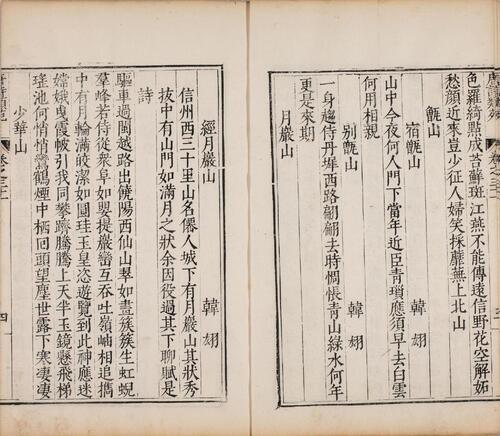 色羅綺點成苔蘚斑江燕不能傳遠信野花空解妬
愁顏近來豈少征人婦笑採蘼蕪上北山
甑山
宿甑山
韓翃
山中今夜何人門下當年近臣青瑣應須早去白雲
何用相親
别甑山
韓翃
一身趨侍丹墀西路翩翩去時惆悵青山綠水何年
更是來期
月巖山
經月巖山
韓翃
信州西三十里山名僊人城下有月巖山其狀秀
拔中有山門如滿月之狀余因役過其下聊賦是
詩
驅車過閩越路出饒陽西仙山翠如畫簇簇生虹蜺
羣峰若侍從衆阜如嬰提巖巒互吞吐嶺岫相追攜
中有月輪滿皎潔如圓珪玉皇恣遊覽到此神應迷
嫦娥曳霞帔引我同攀躋騰騰上天半玉鏡懸飛梯
瑤池何悄悄鸞鶴煙中栖回頭望塵世露下寒凄凄
少華山
四